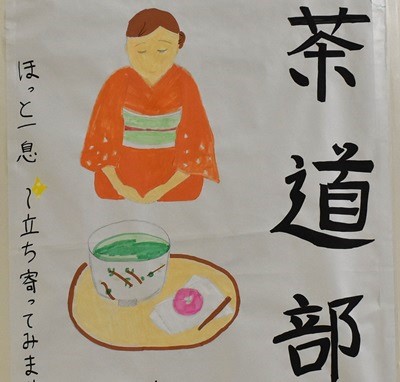 茶道部
ほっと一息 ~立ち寄ってみま